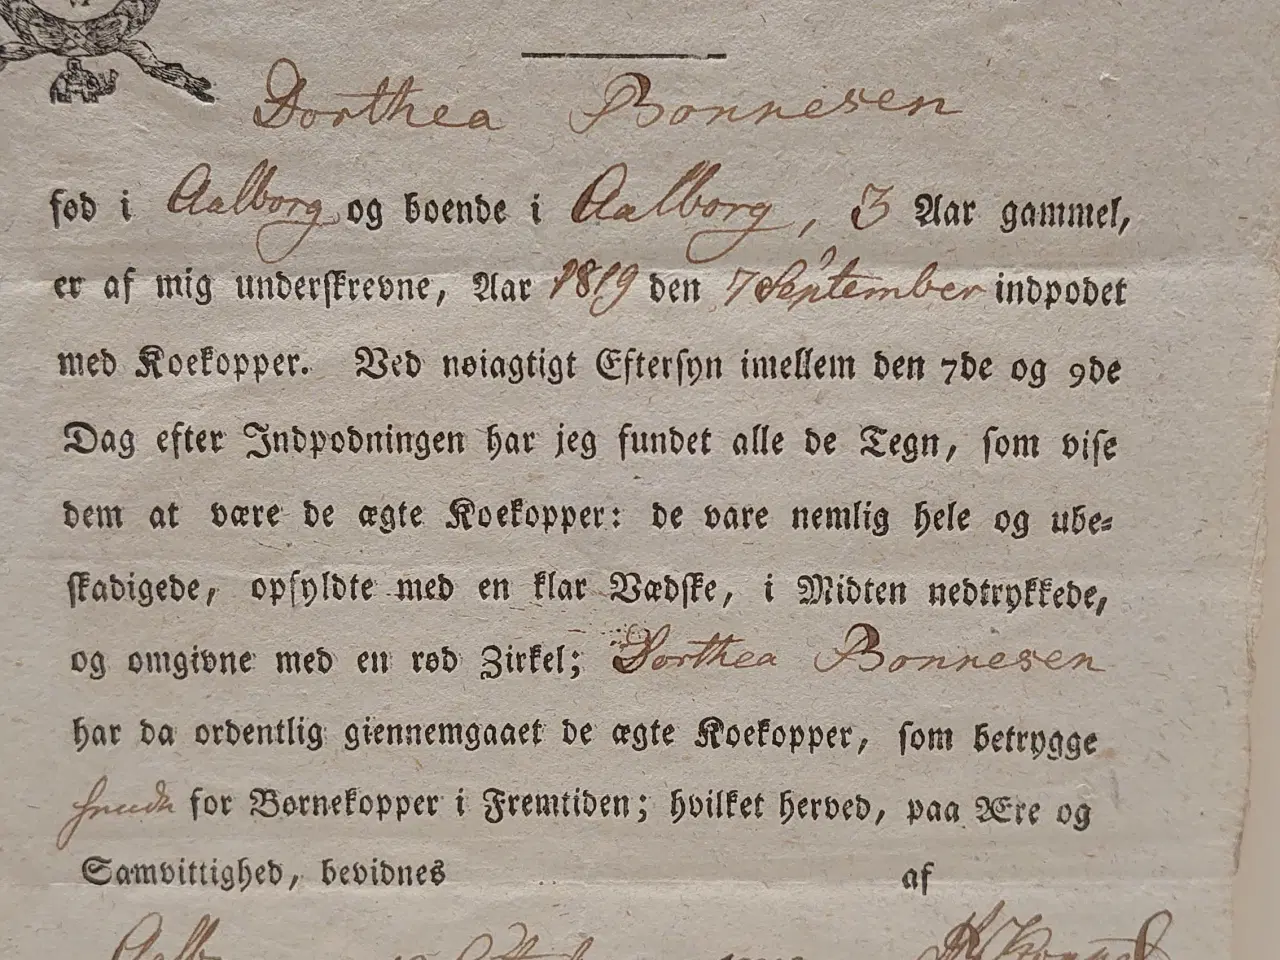 Dorthea Bonnesen
fød i Aalborg og boende i Aalborg, 3 Aar gammel,
er af mig underskrevne, Aar 1819 den 7 September indpodet
med Koekopper. Ved nøiagtigt Eftersyn imellem den 7de og 9de
Dag efter Indpodningen har jeg fundet alle de Tegn, som vise
dem at være de ægte Koekopper: de vare nemlig hele og ube-
skadigede, opfyldte med en klar Vædske, i Midten nedtrykkede,
og omgivne med en rød Zirkel; Dorthea Bonnesen
har da ordentlig giennemgaaet de ægte Koekopper, som betrygge
for Børnekopper i Fremtiden; hvilket herved, paa Ære og
Samvittighed, bevidnes af